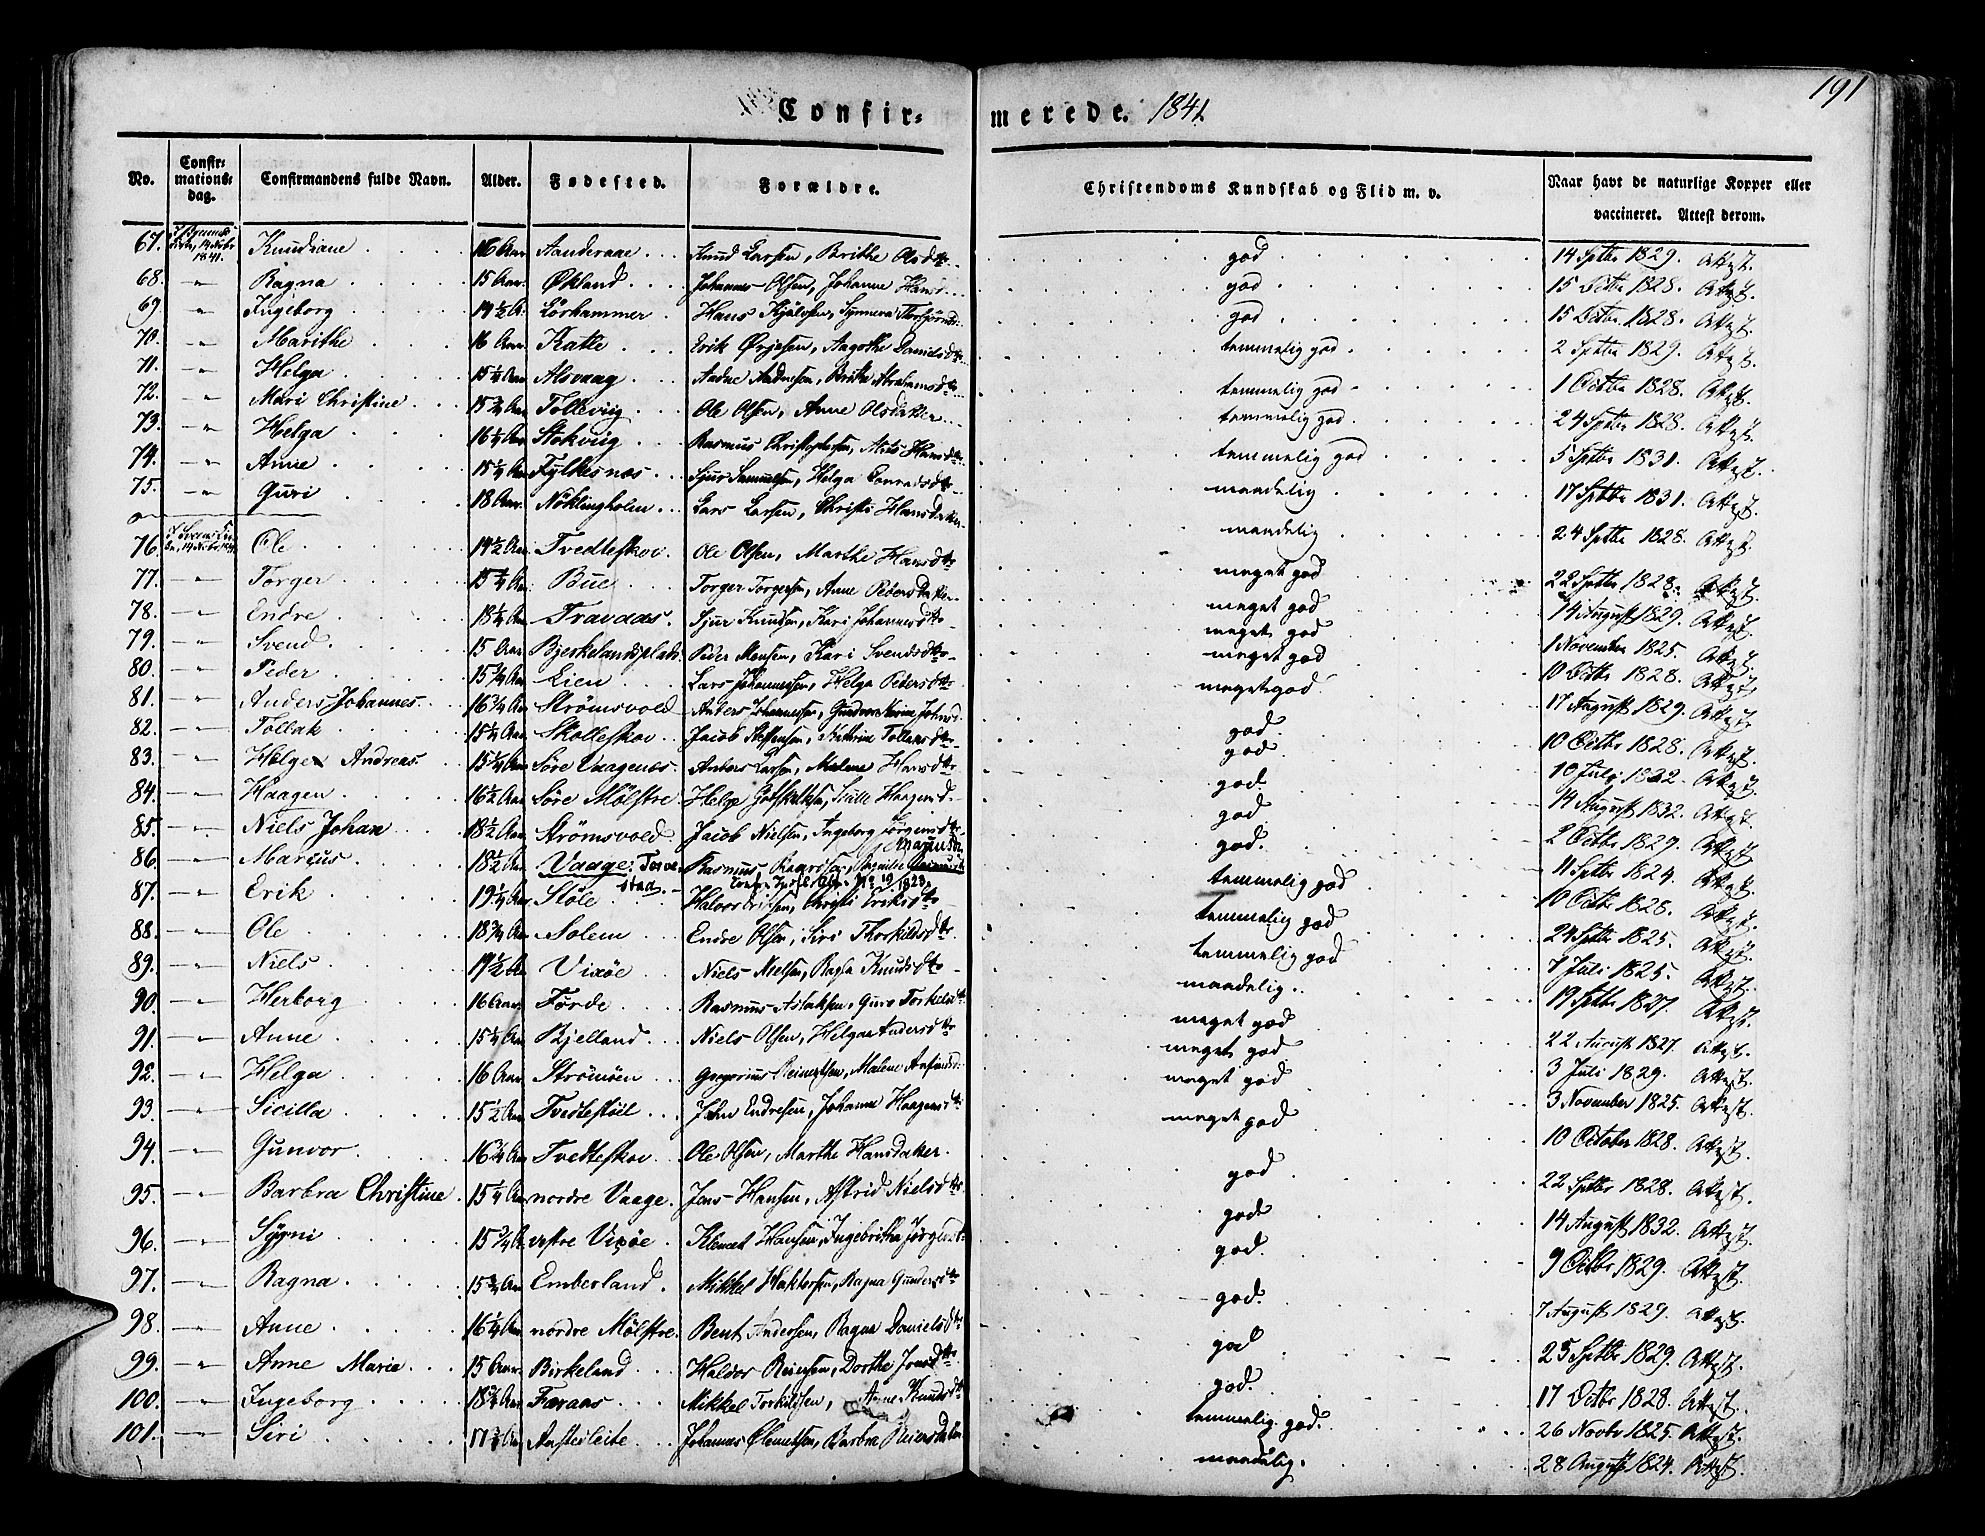 191
Confirmerede. 1841.
No. Confirmationsdag. Confirmandens fulde Navn. Alder. Fødested. Forældre. Christendoms Kundskab og Flid m. v. Naar havt de naturlige Kopper eller vaccineret. Attest derom.
67. 14 1841. Knudiane 16 Aar Aanderaae Knud Larsen, Brithe Olsdtr god 14 Septbr 1829. Attest.
68. Ragna 15 Aar. Økland Johannes Olsen, Johanne Hansd. god 15 Octbr 1828. Attest.
69. Ingeborg 14½ A. Lørhammer Hans god 15 Octbr 1828. Attest.
70. Marithe 16 Aar. Katle Erik Ørjesen, Aagothe Danielsdtr temmelig god 2 Septbr 1829. Attest.
71. Helga 15¼ Aar Alsvaag Aadne Aadnesen, Brithe Abrahamsdtr temmelig god 1 Octbr 1828. Attest.
72. Mari Christine 15¾ Aar Tollevig Ole Olsen, Anne Olsdatter temmelig god 24 Septbr 1828. Attest.
73. Helga 16¼ Aar Stokvig Rasmus Christophersen, Hansdtr temmelig god 5 Septbr 1831. Attest.
74. Anne 15¼ Aar Fylkesnæs Sjur Samuelsen, Helga Conradsdtr maadelig 17 Septbr 1831. Attest.
75. Guri 18 Aar. Nöklingholm Lars Larsen, Christi Hansdatter maadelig 24 Septbr 1828. Attest.
76. Ole 14½ Aar Tvedteskov. Ole Olsen, Marthe Hansdtr meget god 22 Septbr 1828. Attest.
77. Torger 15¼ Aar. Bue Torger Torgersen, Anne Pedersdatter meget god 14 August 1829. Attest.
78. Endre 18¼ Aar. Travaas. Sjur Knudsen, Kari Johannesdtr meget god 1 November 1825. Attest.
79. Svend 15 Aar. Bjerkelandsplads. Peder Monsen, Kari Svendsdtr meget god 10 Octbr 1828. Attest.
80. Peder 15¼ Aar Lien Lars Johannessen, Helga Pedersdtr meget god. 17 August 1829. Attest.
81. Anders Johannes 16¼ Aar Strömsvold Anders Johannessen, Gundvor god. 10 Octbr 1828. Attest.
82. Tollak 15¼ Aar. Skolleskov Jacob Steffensen, Tollaksdtr god 10 Juli Attest.
83. Helge Andreas 15¼ Aar Søre Vaagenes. Anders Larsen, Malene Hansdtr god. 14 August 1832. Attest.
84. Haagen 16½ Aar Søre Mølstre Helge Gotskalksen, Haagensd. god 2 Octbr 1829. Attest.
85. Niels Johan 18½ Aar Strömsvold. Jacob Nielsen, Ingeborg Jörgensdtr god. 11 Septbr 1824. Attest.
86. Marcus 18½ Aar Vaage: Rasmus temmelig god 10 Octbr 1828. Attest.
87. Erik 19¼ Aar Støle Halvor Eriksen, Christi Eriksdtr temmelig god 24 Septbr 1825. Attest.
88. Ole 18¾ Aar Solem Endre Olsen, Siri Thorkildsdtr temmelig god 7 Juli 1825. Attest.
89. Niels 19½ Aar Vixøe Niels Nielsen, Ragla Knudsdtr maadelig. 19 Septbr 1827. Attest.
90. Herborg 16 Aar. Førde Rasmus Aslaksen, Guro Torkelsdtr meget god 22 August 1827. Attest.
91. Anne 15¼ Aar Bjelland Niels Olsen, Helga Andersdtr meget god 3 Juli 1829. Attest.
92. Helga 16 Aar. Strömöen Gregorius Reinertsen, Malene Anfindsd. meget god 3 November 1825. Attest.
93. Sicilla 15½ Aar. Tvedtestöel John Endresen, Johanne Haagensdtr meget god 10 October 1828. Attest.
94. Gunvor 16¼ Aar Tvedteskov Ole Olsen, Marthe Hansdatter. god 22 Septbr 1828. Attest.
95. Barbra Christine 15¼ Aar nordre Vaage. Jens Hansen, Astrid Nielsdtr god 14 August 1832. Attest.
96. Sygni 15¾ A. vestre Vixøe. Klemet Hansen, Ingebritha god. 9 Octbr 1829. Attest.
97. Ragna 15¾ Aar Emberland Mikkel Ragna Gundersdtr god. 7 August 1829. Attest.
98. Anne 16¼ Aar nordre Mølstre. Bent Andersen, Ragna Danielsdtr god 25 Septbr 1829. Attest.
99. Anne Maria 15 Aar. Birkeland Haldor Reinsen, Dorthe Jonsdtr god. 17 Octbr 1828. Attest.
100. Ingeborg 18¾ Aar Færaas Mikkel Torkildsen, Anne Knudsdtr temmelig god. 26 Novbr 1825. Attest.
101. Siri 17¾ Aar Johannes Barbra maadelig. 28 August 1824. Attest.